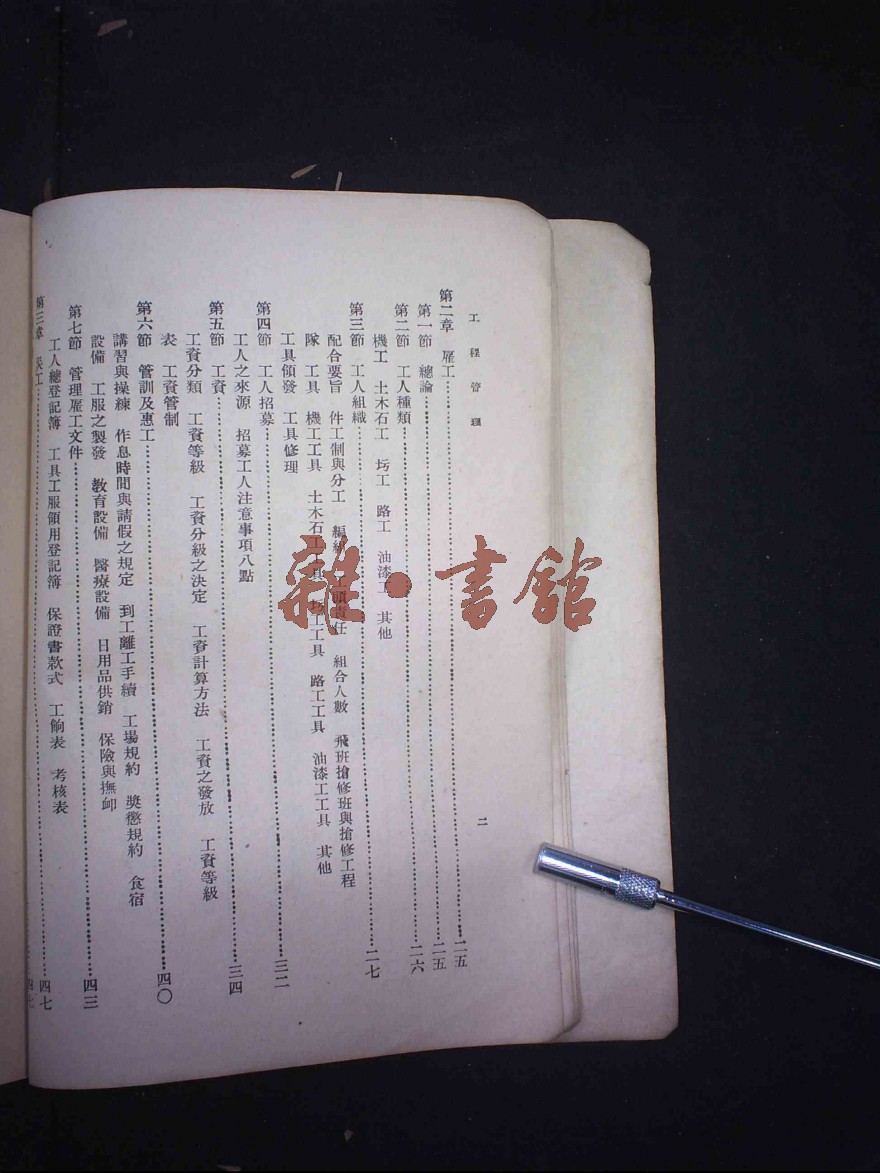 工程管理
二
第二章 雇工……二五
第一節 總論……二五
第二節 工人種類……二六
機工 土木石工 圬工 路工 油漆工 其他
第三節 工人組織……二七
配合要旨 件工制與分工 編組 工頭責任 組合人數 飛班搶修班與搶修工程
隊 工具 機工工具 土木石工工具 圬工工具 路工工具 油漆工工具 其他
工具領發 工具修理
第四節 工人招募……三二
工人之來源 招募工人注意事項八點
第五節 工資……三四
工資分類 工資等級 工資分級之決定 工資計算方法 工資之發放 工資等級
表 工資管制
第六節 管訓及惠工……四〇
講習與操練 作息時間與請假之規定 到工離工手續 工場規約 獎懲規約 食宿
設備 工服之製發 教育設備 醫療設備 日用品供銷 保險與撫卹
第七節 管理雇工文件……四三
工人總登記簿 工具工服領用登記簿 保證書款式 工餉表 考核表
第三章 工……四七
四七
雜·書館